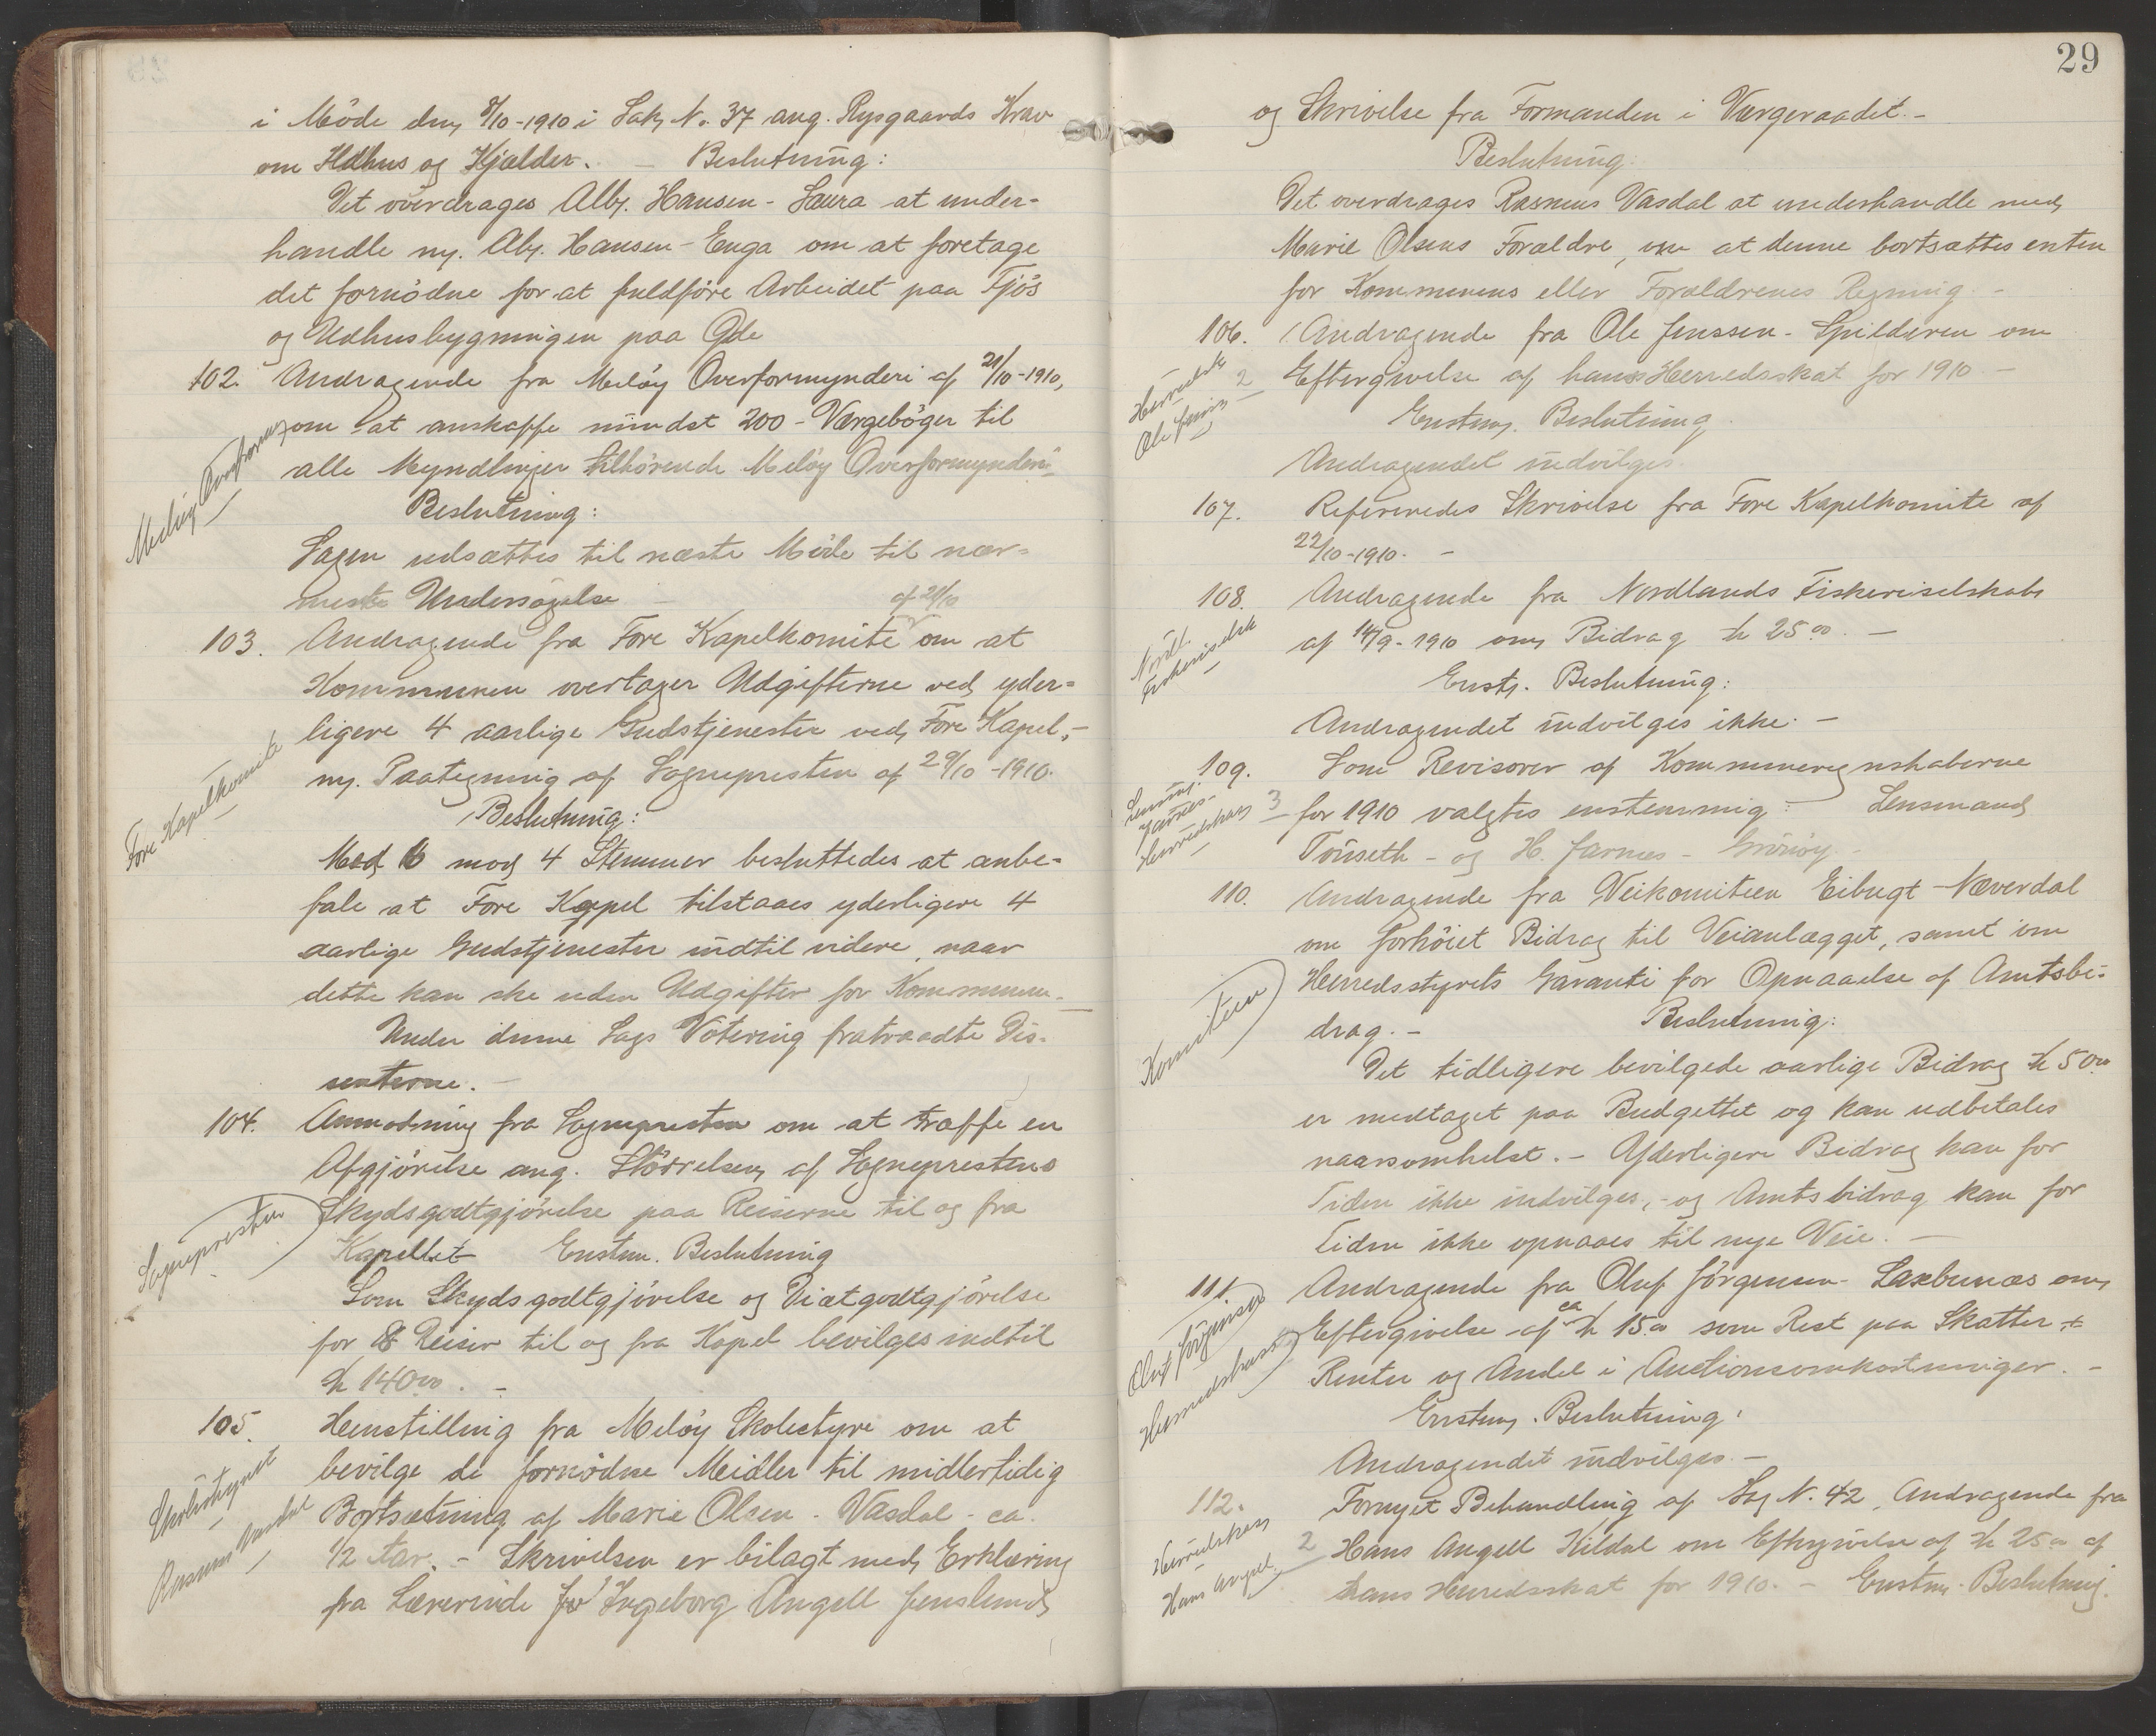 i Möde den 8/10-1910 i Sak N. 37 ang. Rysgaards Krav
om Ildhus og Kjælder. — Beslutning:
Det overdrages Alb. Hansen - Saura at under-
handle m. Alb. Hansen - Enga om at foretage
det fornödne for at fuldföre Arbeidet paa Fjös
og Udhusbygningen paa Öde
102. Andragende fra Melöy Overformynderi af 21/10-1910,
om at anskaffe mindst 200 - Værgeböger til
alle Myndlinger tilhörende Melöy Overformynderi
Melöy Overform
Beslutning:
Sagen udsættes til næste Möde til nær-
meste Undersögelse
103. Andragende fra Fore Kapelkomite af 21/10 om at
Kommunen overtager Udgifterne ved yder-
ligere 4 aarlige Gudstjenester ved Fore Kapel,-
m. Paategning af Sognepresten af 29/10-1910.
Fore Kapelkomite
Beslutning:
Med 6 mod 4 Stemmer besluttedes at anbe-
fale at Fore Kapel tilstaaes yderligere 4
aarlige Gudstjenester indtil videre, naar
dette kan ske uden Udgifter for Kommunen.
Under denne Sags Votering fratraadte Dis-
senterne. —
104. Anmodning fra Sognepresten om at træffe en
Afgjörelse ang. Störrelsen af Sogneprestens
Skydsgodtgjörelse paa Reiserne til og fra
Sognepresten
Kapellet Enstem. Beslutning
Som Skydsgodtgjörelse og Diætgodtgjörelse
for 8 Reiser til og fra Kapel bevilges indtil
Kr 140.00. —
105. Henstilling fra Melöy Skolestyre om at
bevilge de fornödne Meidler til midlertidig
Skolestyret
Bortsætning af Marie Olsen - Vasdal - ca.
Rasmus Vasdal
1/2 Aar. - Skrivelsen er bilagt med Erklæring
fra Lærerinde Ingeborg Angell Jenslund
29
og Skrivelse fra Formanden i Værgeraadet. -
Beslutning:
Det overdrages Rasmus Vasdal at underhandle med
Marie Olsens Forældre, om at denne bortsættes enten
for Kommunens eller Forældrenes Regning. -
106. Andragende fra Ole Jenssen - Spilderen om
Eftergivelse af hans Herredsskat for 1910 -
Herredsk 2
Ole Jens
Enstem. Beslutning
Andragendet indvilges.
107. Refereredes Skrivelse fra Fore Kapelkomite af
22/10-1910. -
108. Andragende fra Nordlands Fiskeriselskab
af 14/9-1910 om Bidrag Kr 25.00. —
Nordl.
Fiskeriselsk
Enst. Beslutning:
Andragendet indvilges ikke. -
109. Som Revisorer af Kommuneregnskaberne
for 1910 valgtes enstemmig: Lensmand
Lensm.
Jarnes -
Herredskass 3
Tönseth - og H. Jarnes - Grönöy. -
110. Andragende fra Veikomiteen Eibugt - Næverdal
om forhöiet Bidrag til Veianlægget, samt om
Herredsstyrets Garanti for Opnaaelse af Amtsbi-
drag. - Beslutning:
Komiteen
Det tidligere bevilgede aarlige Bidrag Kr 50.00
er medtaget paa Budgettet og kan udbetales
naarsomhelst. - Yderligere Bidrag kan for
Tiden ikke indvilges, - og Amtsbidrag kan for
Tiden ikke opnaaes til nye Veie. —
111. Andragende fra Oluf Jörgensen - Laxebunæs om
Eftergivelse af ca Kr 15.00 som Rest paa Skatter +
Renter og Andel i Auctionsomkostninger. -
Oluf Jörgensen
Herredskass
Enstem. Beslutning:
Andragendet indvilges. -
112. Fornyet Behandling af Sag N. 42, Andragende fra
Hans Angell Kildal om Eftergivelse af Kr 25.00 af
Herredskass 2
Hans Angell
hans Herredsskat for 1910. - Enstem. Beslutning.